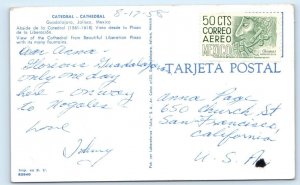 8-12-58
CATEDRAL - CATHEDRAL
Guadalajara, Jalisco, Mexico
Fachada de la Catedral (1561-1618) Vista desde la Plaza
de la Liberación.
View of the Cathedral from Beautiful Liberacion Plaza
with its many fountains.
Glorious Guadalajara
only one day
here - on way
to Nogales
Love
50 CTS
CORREO
AEREO
MEXICO
TARJETA POSTAL
Anna Page
650 Church St
San Francisco,
California
U. S. A.